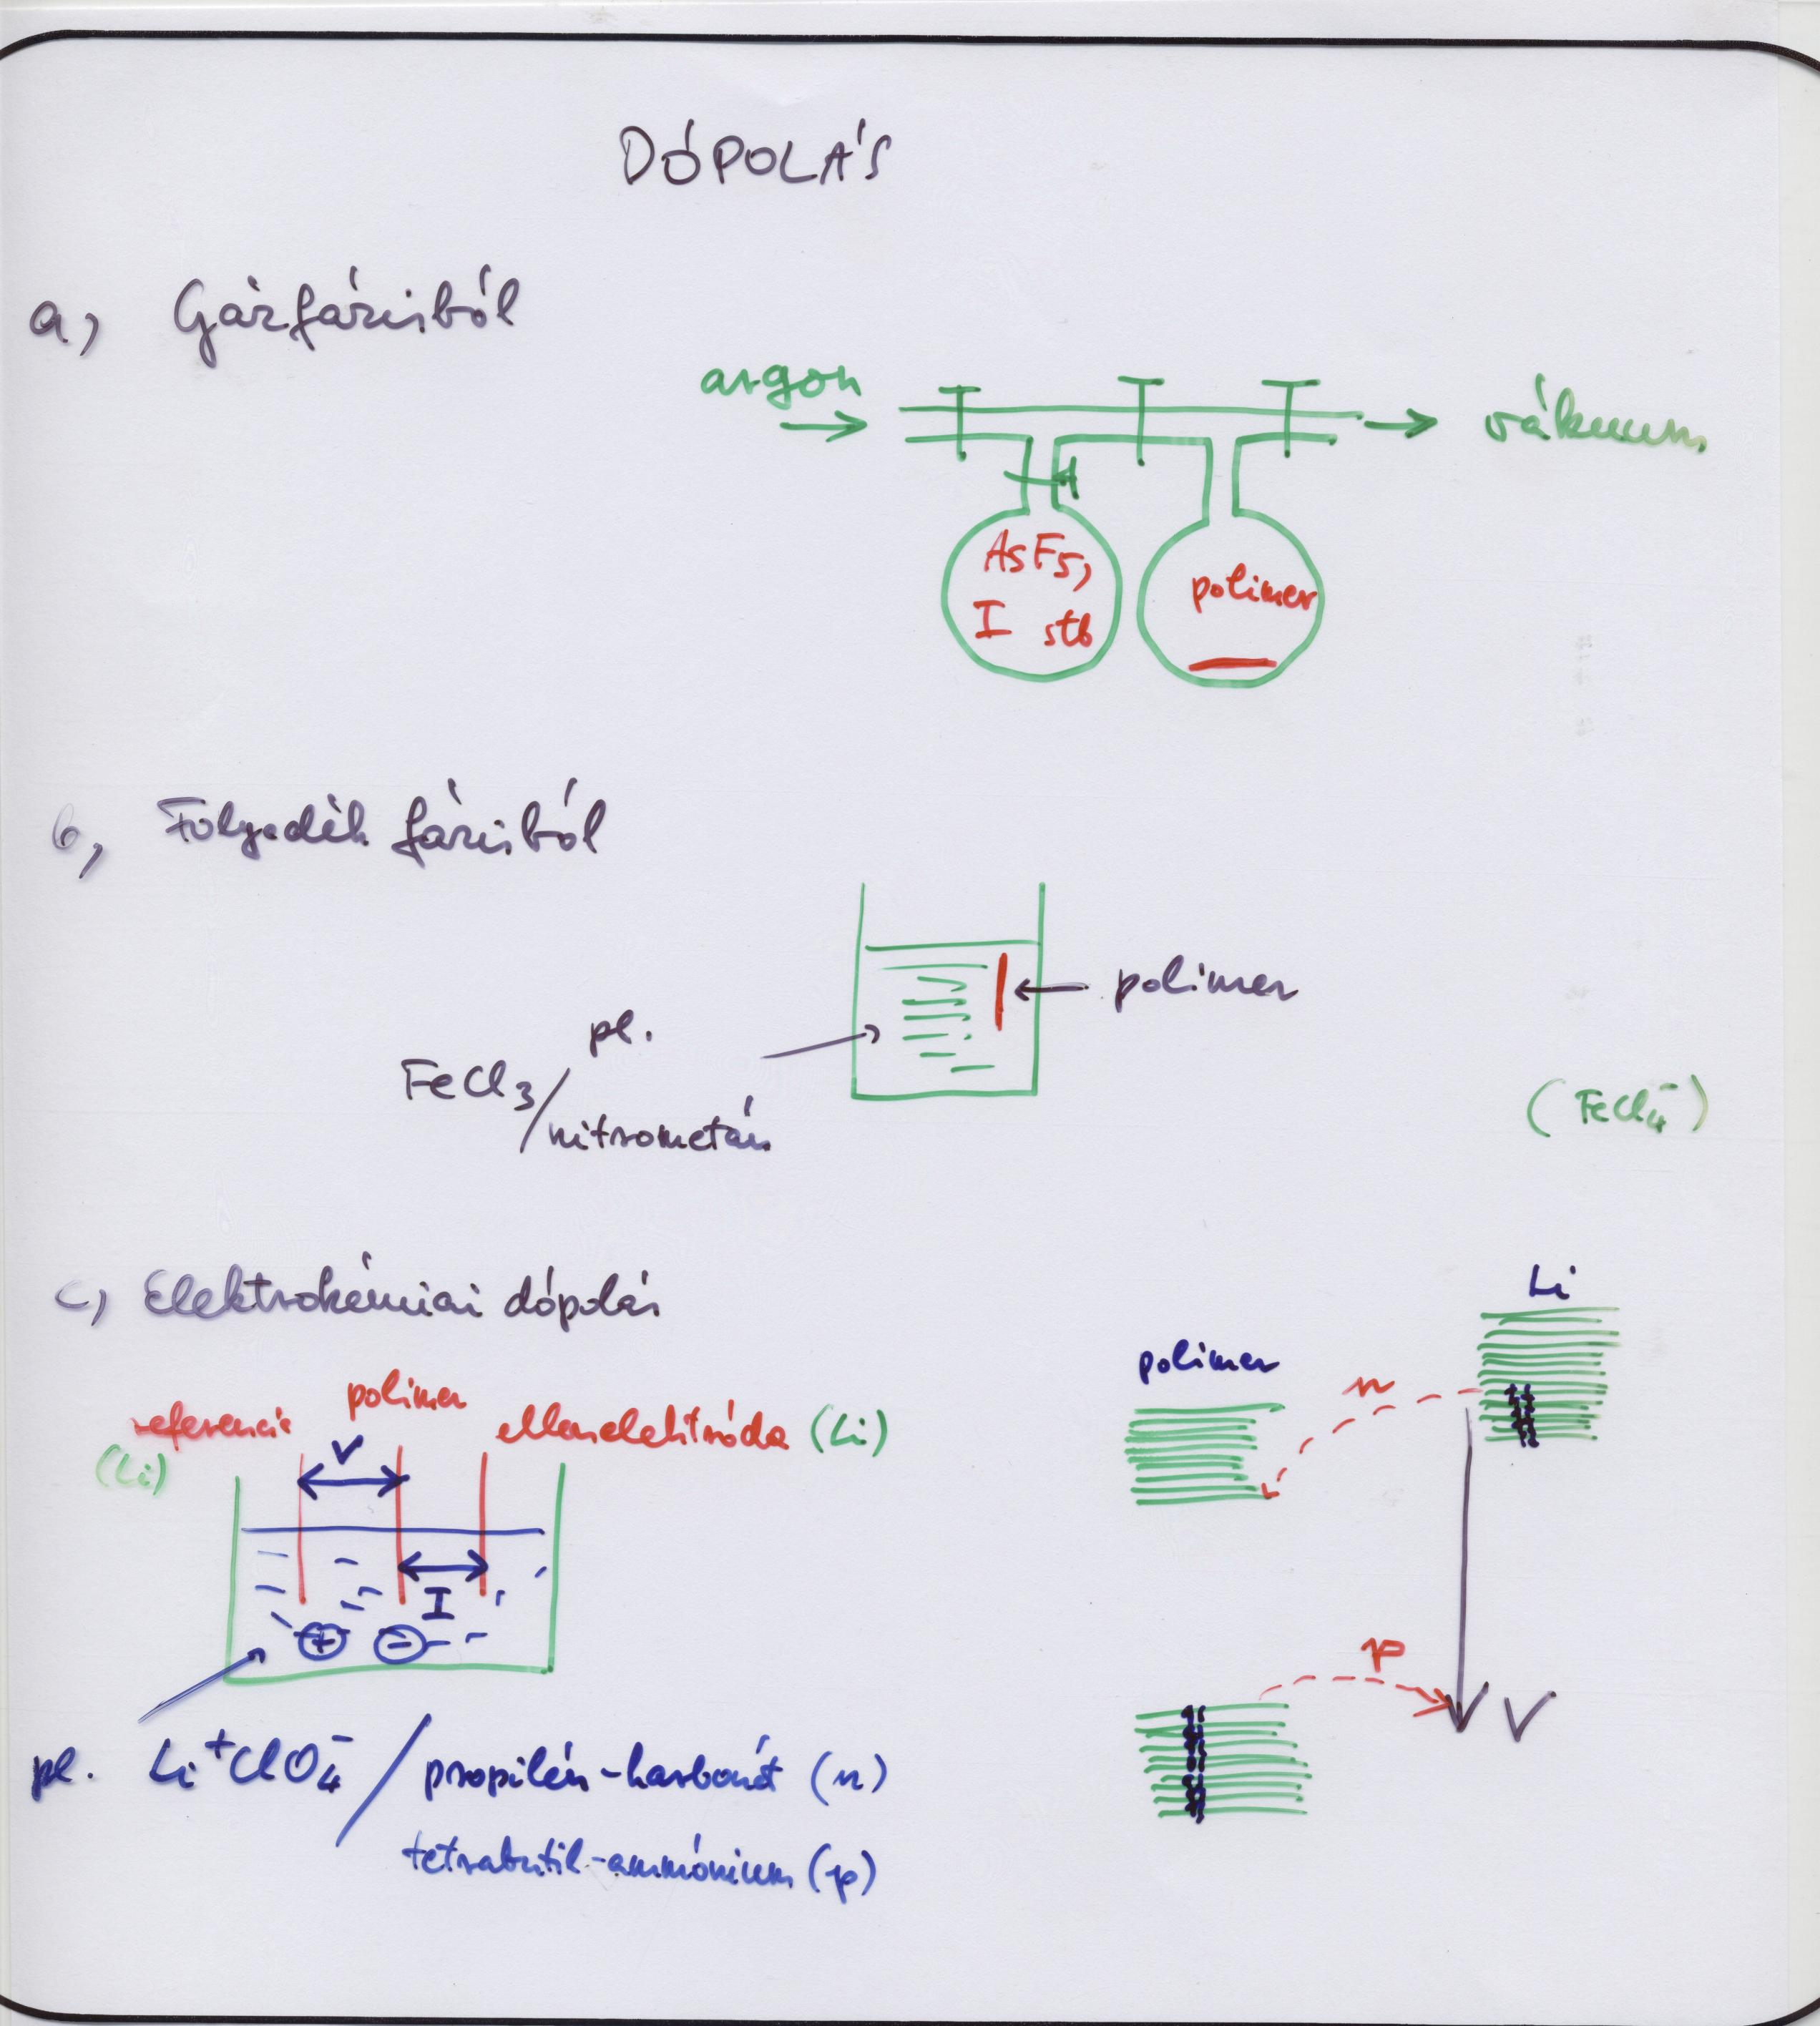 DÓPOLÁS
a, Gázfázisból
argon
vákuum
AsF5,
I stb
polimer
b, Folyadék fázisból
polimer
pl.
FeCl3/
nitrometán
(FeCl4-)
c, Elektrokémiai dópolás
Li
polimer
n
referencia
polimer
ellenelektróda (Li)
(Li)
V
I
+
-
p
V
pl. Li+ClO4- / propilén-karbonát (n)
tetrabutil-ammónium (p)